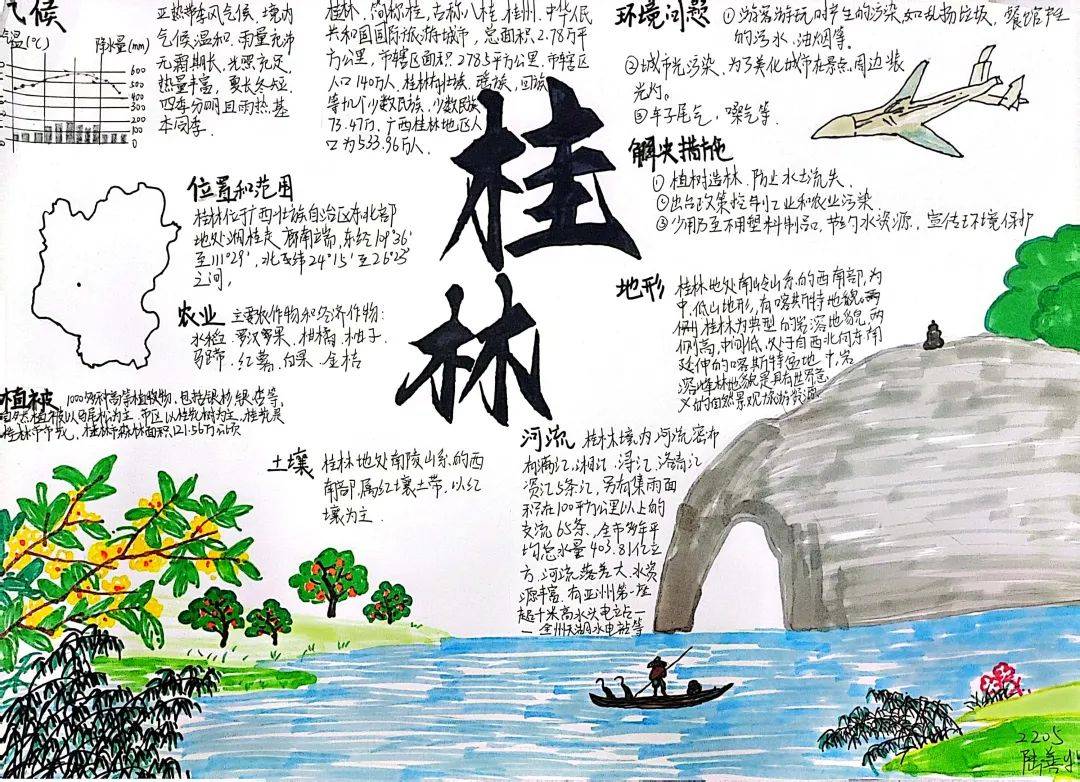 气候
气温(℃)
降水量(mm)
600
500
400
300
200
100
0
亚热带季风气候、境内
气候温和、雨量充沛
无霜期长、光照充足、
热量丰富，夏长冬短
四季分明且雨热基
本同季.
桂林，简称桂,古称八桂、桂州、中华人民
共和国国际旅游城市，总面积2.78万平
方公里，市辖区面积2785平方公里、市辖区
人口140万人、桂林有壮族、瑶族、回族
等几个少数民族、少数民族
73.47万、广西桂林地区人
口为533.96万人.
环境问题
①游客游玩时产生的污染,如乱扔垃圾，餐馆产生
的污水、油烟等.
②城市光污染、为了美化城市在景点周边装
光灯。
③车子尾气，噪气等.
解决措施
①植树造林、防止水土流失.
②出台政策控制工业和农业污染.
③少用乃至不用塑料制品,节约水资源，宣传环境保护
位置和范围
桂林位于广西壮族自治区东北部
地处湘桂走廊南端，东经109°36′
至111°29′，北纬24°15′至26°23′
之间，
农业
主要农作物和经济作物：
水稻、罗汉果、柑橘、柚子、
马蹄、红薯、白果、金桔
桂林
地形
桂林地处南岭山系的西南部,为
中、低山地形，有喀斯特地貌。两
桂林为典型的岩溶地貌，两
侧高,中间低、处于自西北向东南
延伸的喀斯特盆地中,岩
溶峰林地貌是具有世界意
义的自然景观旅游资源
植被
1000多种高等植物，包括银杉、银杏等，
自然植被以马尾松为主、市区以桂花树为主、桂花是
桂林市市花，桂林市森林面积121.56万公顷
土壤
桂林地处南陵山系的西
南部、属红壤土带，以红
壤为主.
河流
桂林境内河流密布
有漓江、湘江、浔江、洛清江
资江5条江，另有集雨面
积在100平方公里以上的
支流65条、全市多年平
均总水量403.81亿立
方、河流落差大、水资
源丰富、有亚洲第一座
超千米高水头电站一
一全州天湖水电站等
2205
陆善